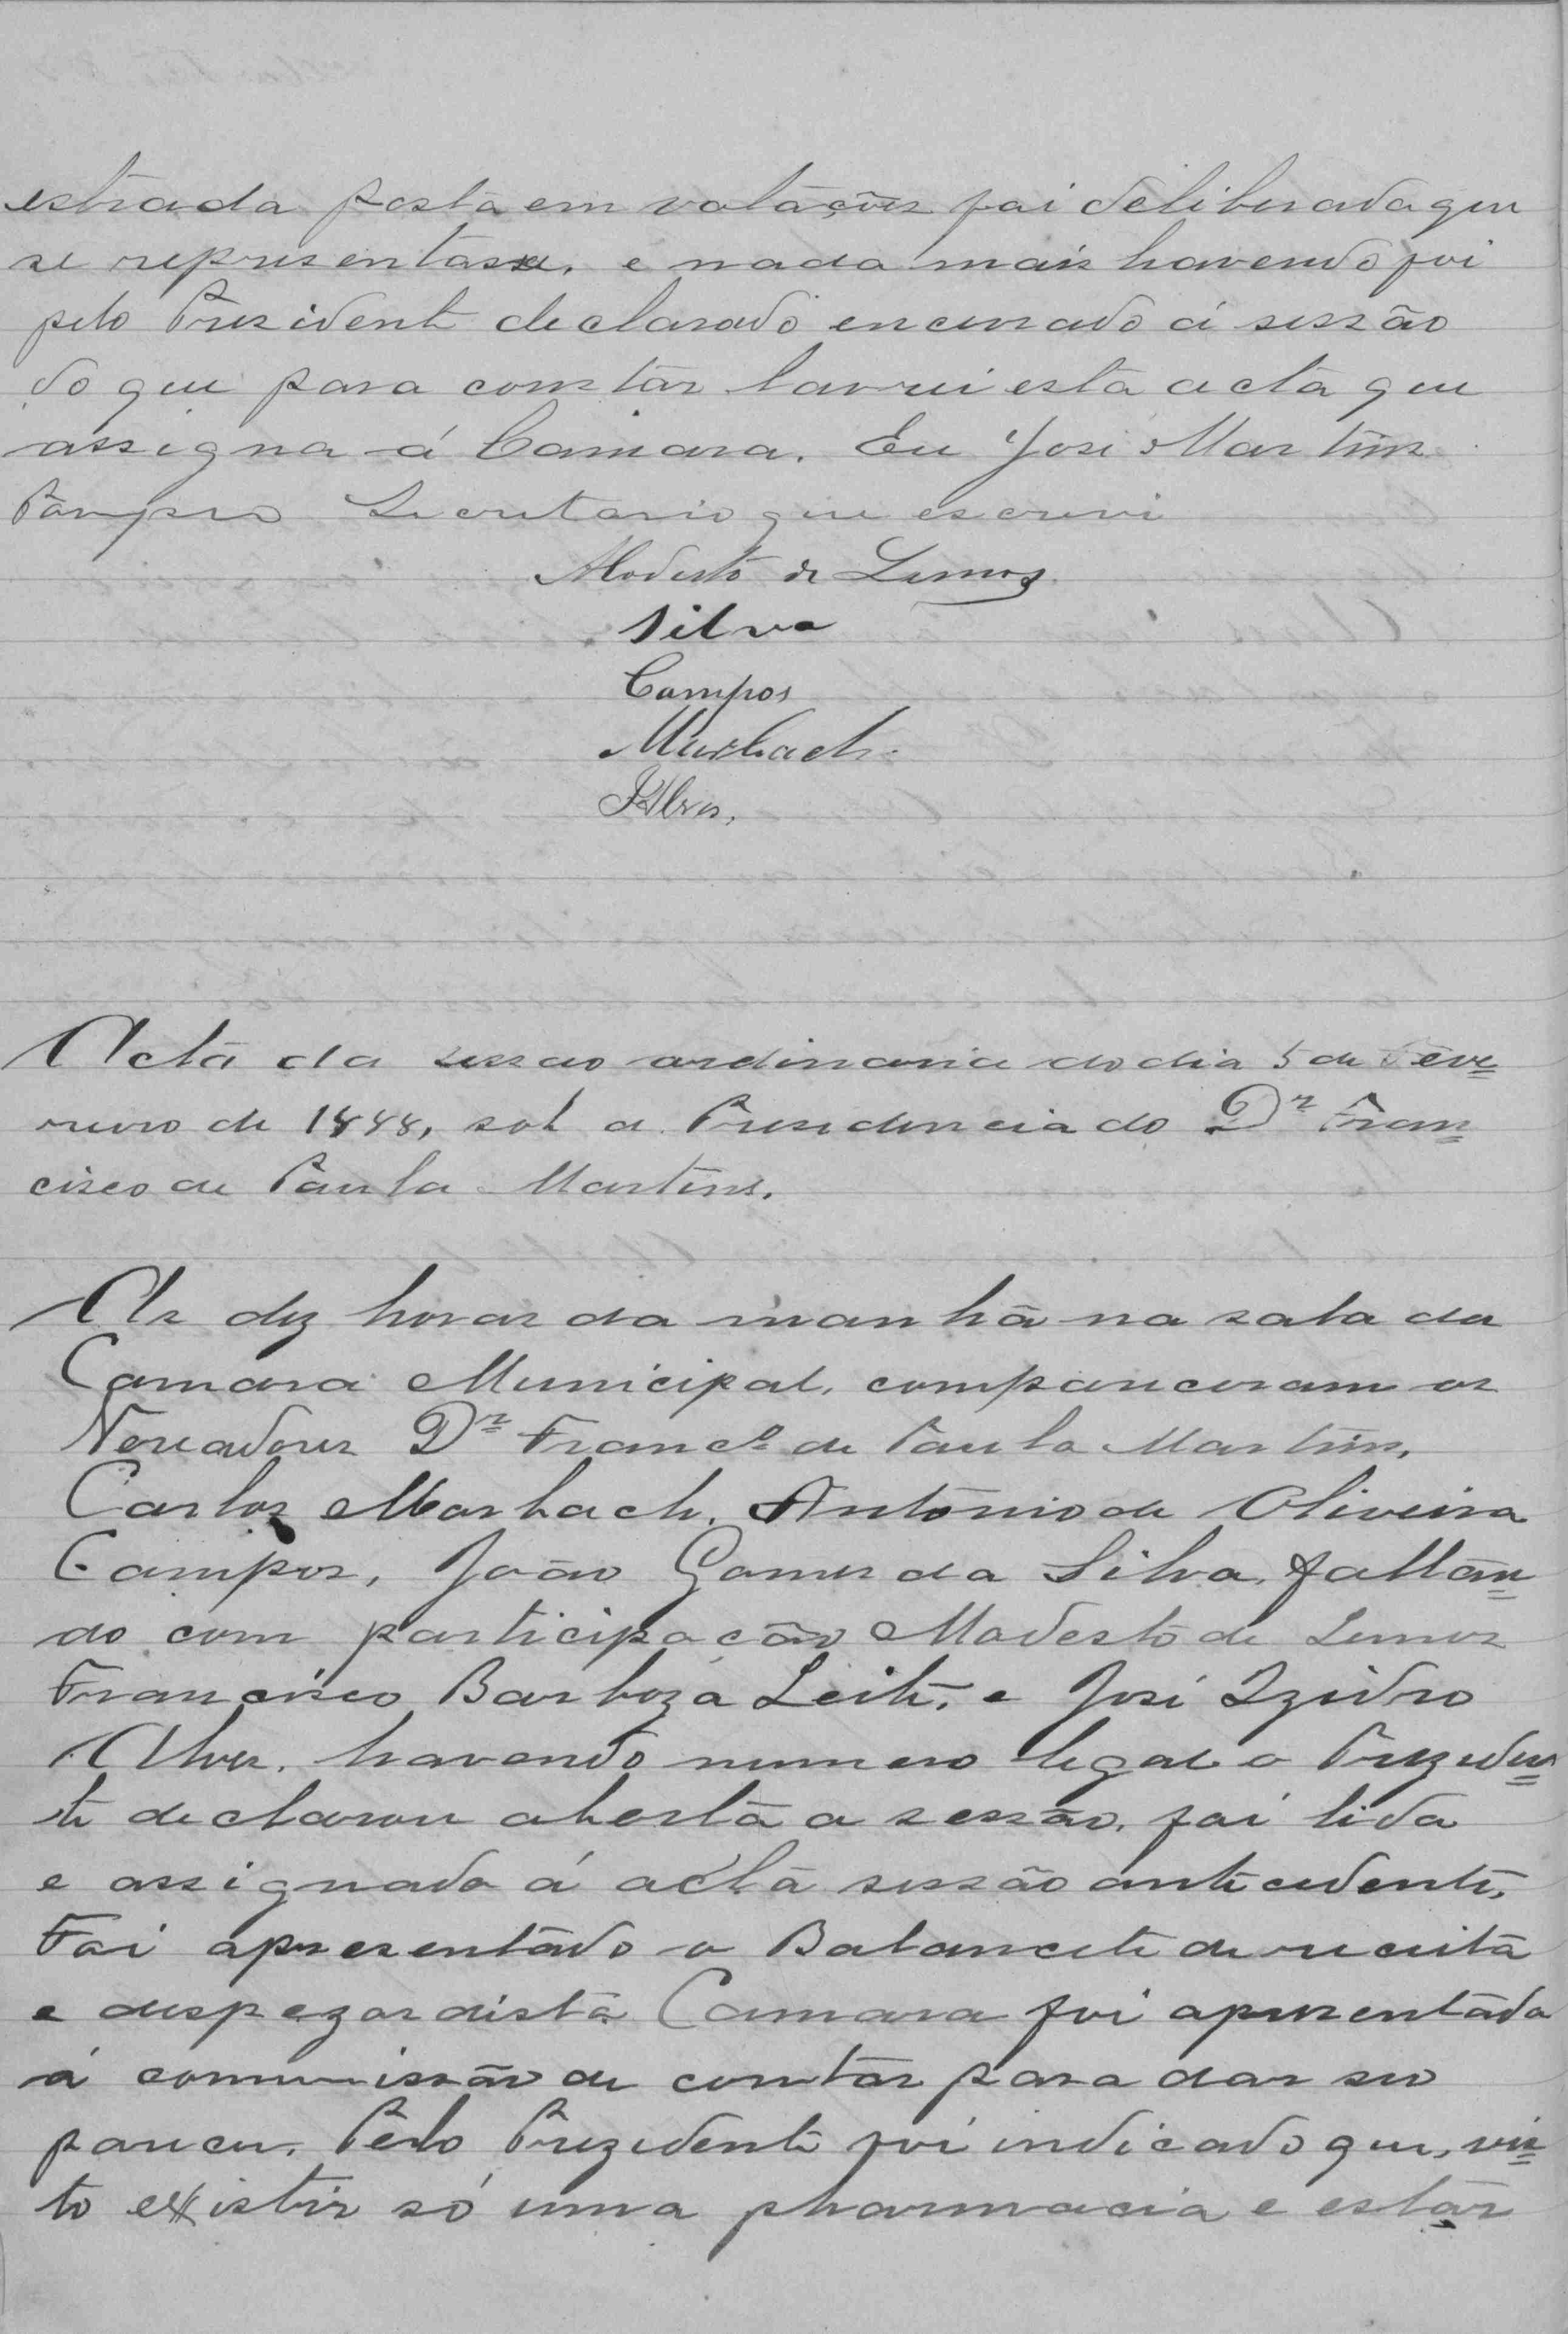 estrada posta em votações foi deliberada que
se representasse. e nada mais havendo foi
pelo Prezidente declarado encerrado á sessão
do que para constar lavrei esta acta que
assigna á Camara. Eu José Martins
Secretario que escrevi
Modesto de Lemos
Silva
Campos
Murbach
JAlves.
Acta da sessao ordinaria do dia 5 de Feve=
reiro de 1888, sob a Presidencia do Dr Fran=
cisco de Paula Martins.
As dez horas da manhã na sala da
Camara Municipal, compareceram os
Vereadores Dr Franco de Paula Martins,
Carlos Murbach, Antonio de Oliveira
Campos, João Gomes da Silva, faltan=
do com participação Modesto de Lemos
Francisco Barboza Leite, e José Izidro
Alves. havendo numero legal o Preziden=
te declarou aberta a sessão, foi lida
e assignada á acta sessão antecedente,
Foi apresentado o Balancete de receita
e despezas dista Camara foi aprezentada
á commissão de contas para dar seo
parecer. Pelo Prezidente foi indicado que, vis=
to existir só uma pharmacia e estar